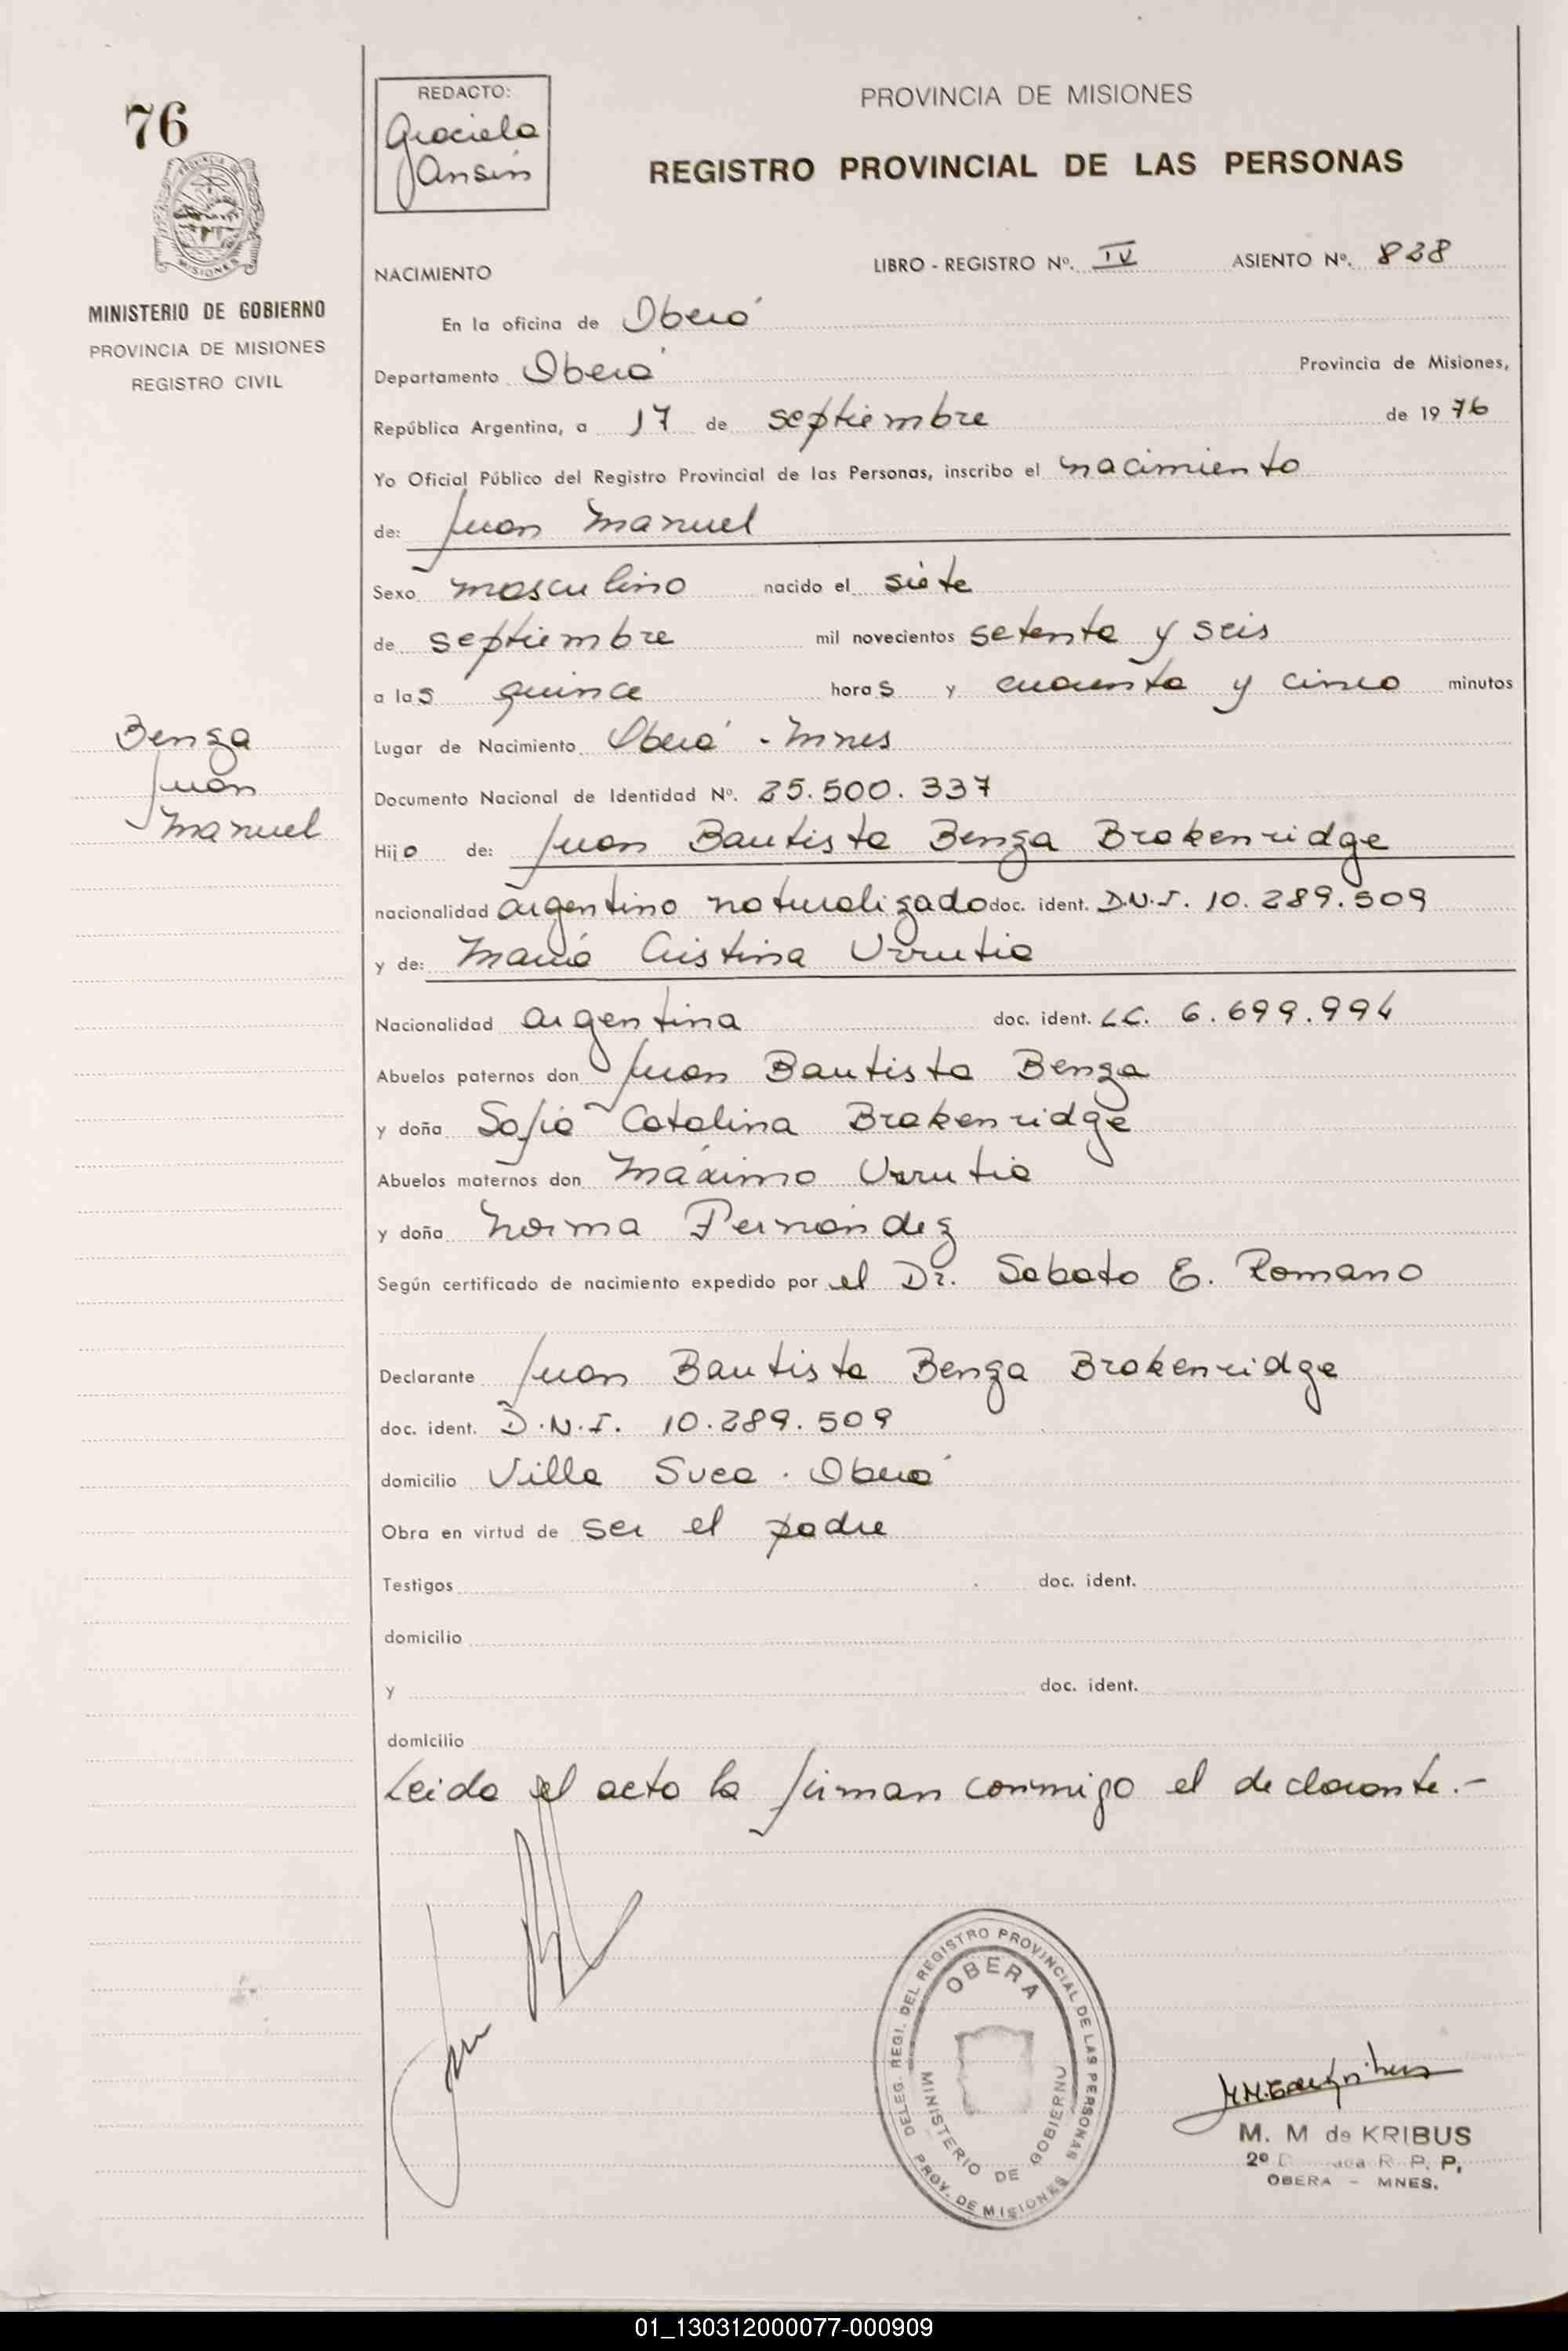 76
PROVINCIA DE
MISIONES
MINISTERIO DE GOBIERNO
PROVINCIA DE MISIONES
REGISTRO CIVIL
Benga
Juan
Manuel
REDACTO:
Graciela
Jansin
PROVINCIA DE MISIONES
REGISTRO PROVINCIAL DE LAS PERSONAS
NACIMIENTO LIBRO - REGISTRO Nº. IV ASIENTO Nº. 828
En la oficina de Oberá
Departamento Oberá Provincia de Misiones,
República Argentina, a 17 de septiembre de 1976
Yo Oficial Público del Registro Provincial de las Personas, inscribo el nacimiento
de: Juan Manuel
Sexo masculino nacido el siete
de septiembre mil novecientos setenta y seis
a las quince horas y cuarenta y cinco minutos
Lugar de Nacimiento Oberá - Mnes
Documento Nacional de Identidad Nº. 25.500.337
Hijo de: Juan Bautista Benga Brokenridge
nacionalidad argentino naturalizado doc. ident. D.N.I. 10.289.509
y de: María Cristina Urrutia
Nacionalidad argentina doc. ident. LC. 6.699.994
Abuelos paternos don Juan Bautista Benga
y doña Sofía Catalina Brokenridge
Abuelos maternos don Máximo Urrutia
y doña Norma Fernández
Según certificado de nacimiento expedido por el Dr. Sabato E. Romano
Declarante Juan Bautista Benga Brokenridge
doc. ident. D.N.I. 10.289.509
domicilio Villa Sueca . Oberá
Obra en virtud de ser el padre
Testigos doc. ident.
domicilio
y doc. ident.
domicilio
Leida el acta la firman conmigo el declarante.-
DELEG. REGI. DEL REGISTRO PROVINCIAL DE LAS PERSONAS
OBERA
MINISTERIO DE GOBIERNO
PROV. DE MISIONES
M. M de KRIBUS
2º R. P. P,
OBERA - MNES.
01_130312000077-000909